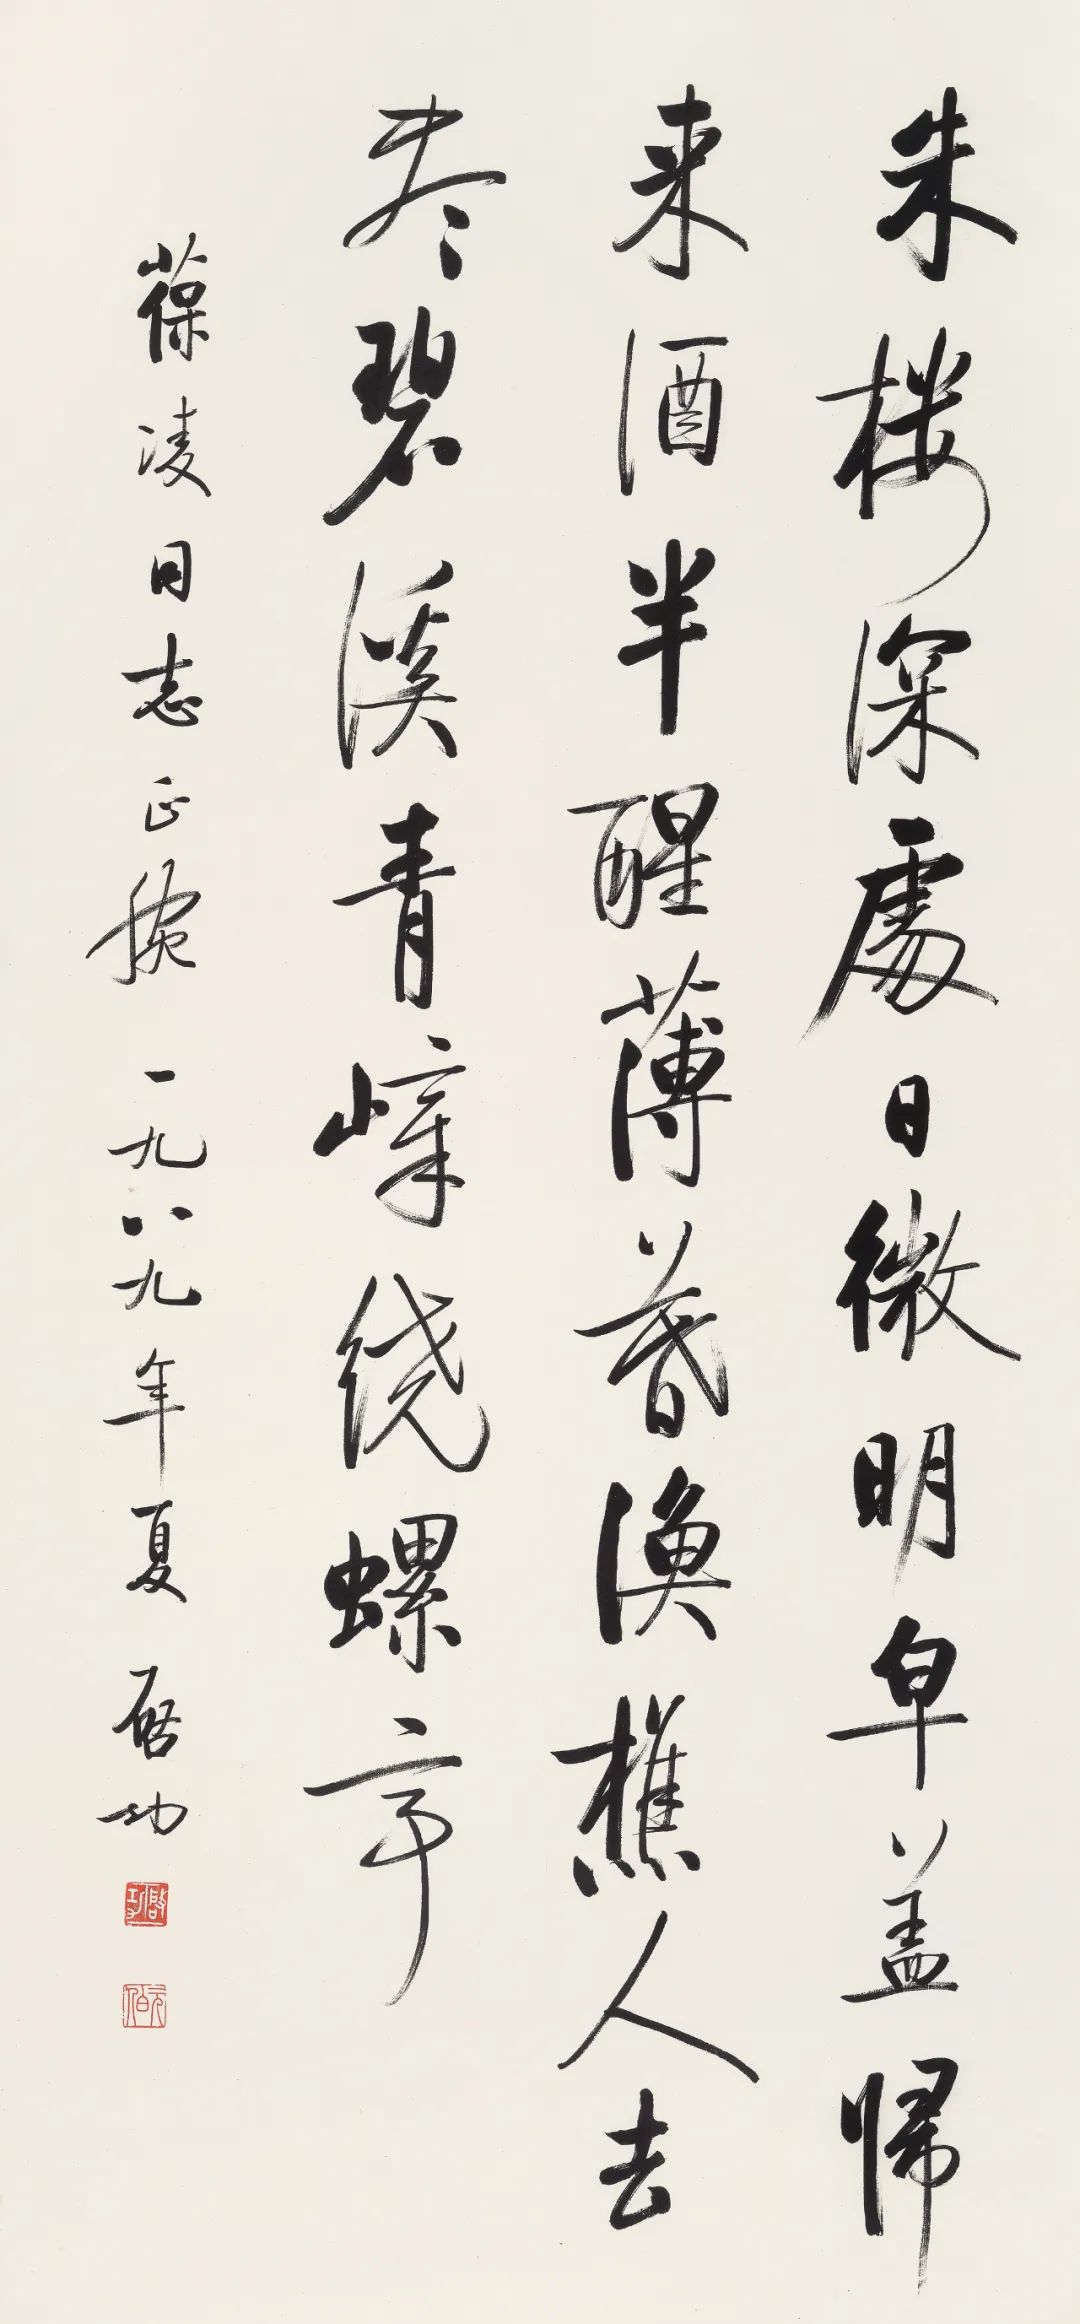 朱楼深處日微明皂盖帰
来酒半醒薄暮漁樵人去
尽碧溪青嶂绕螺亭
葆凌同志正腕 一九八九年夏 启功
啟功
元伯